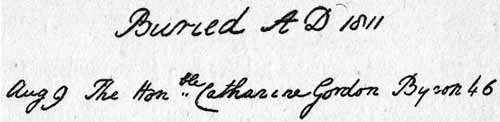 Buried A D 1811
Aug 9 The Hon.ble Catharine Gordon Byron 46